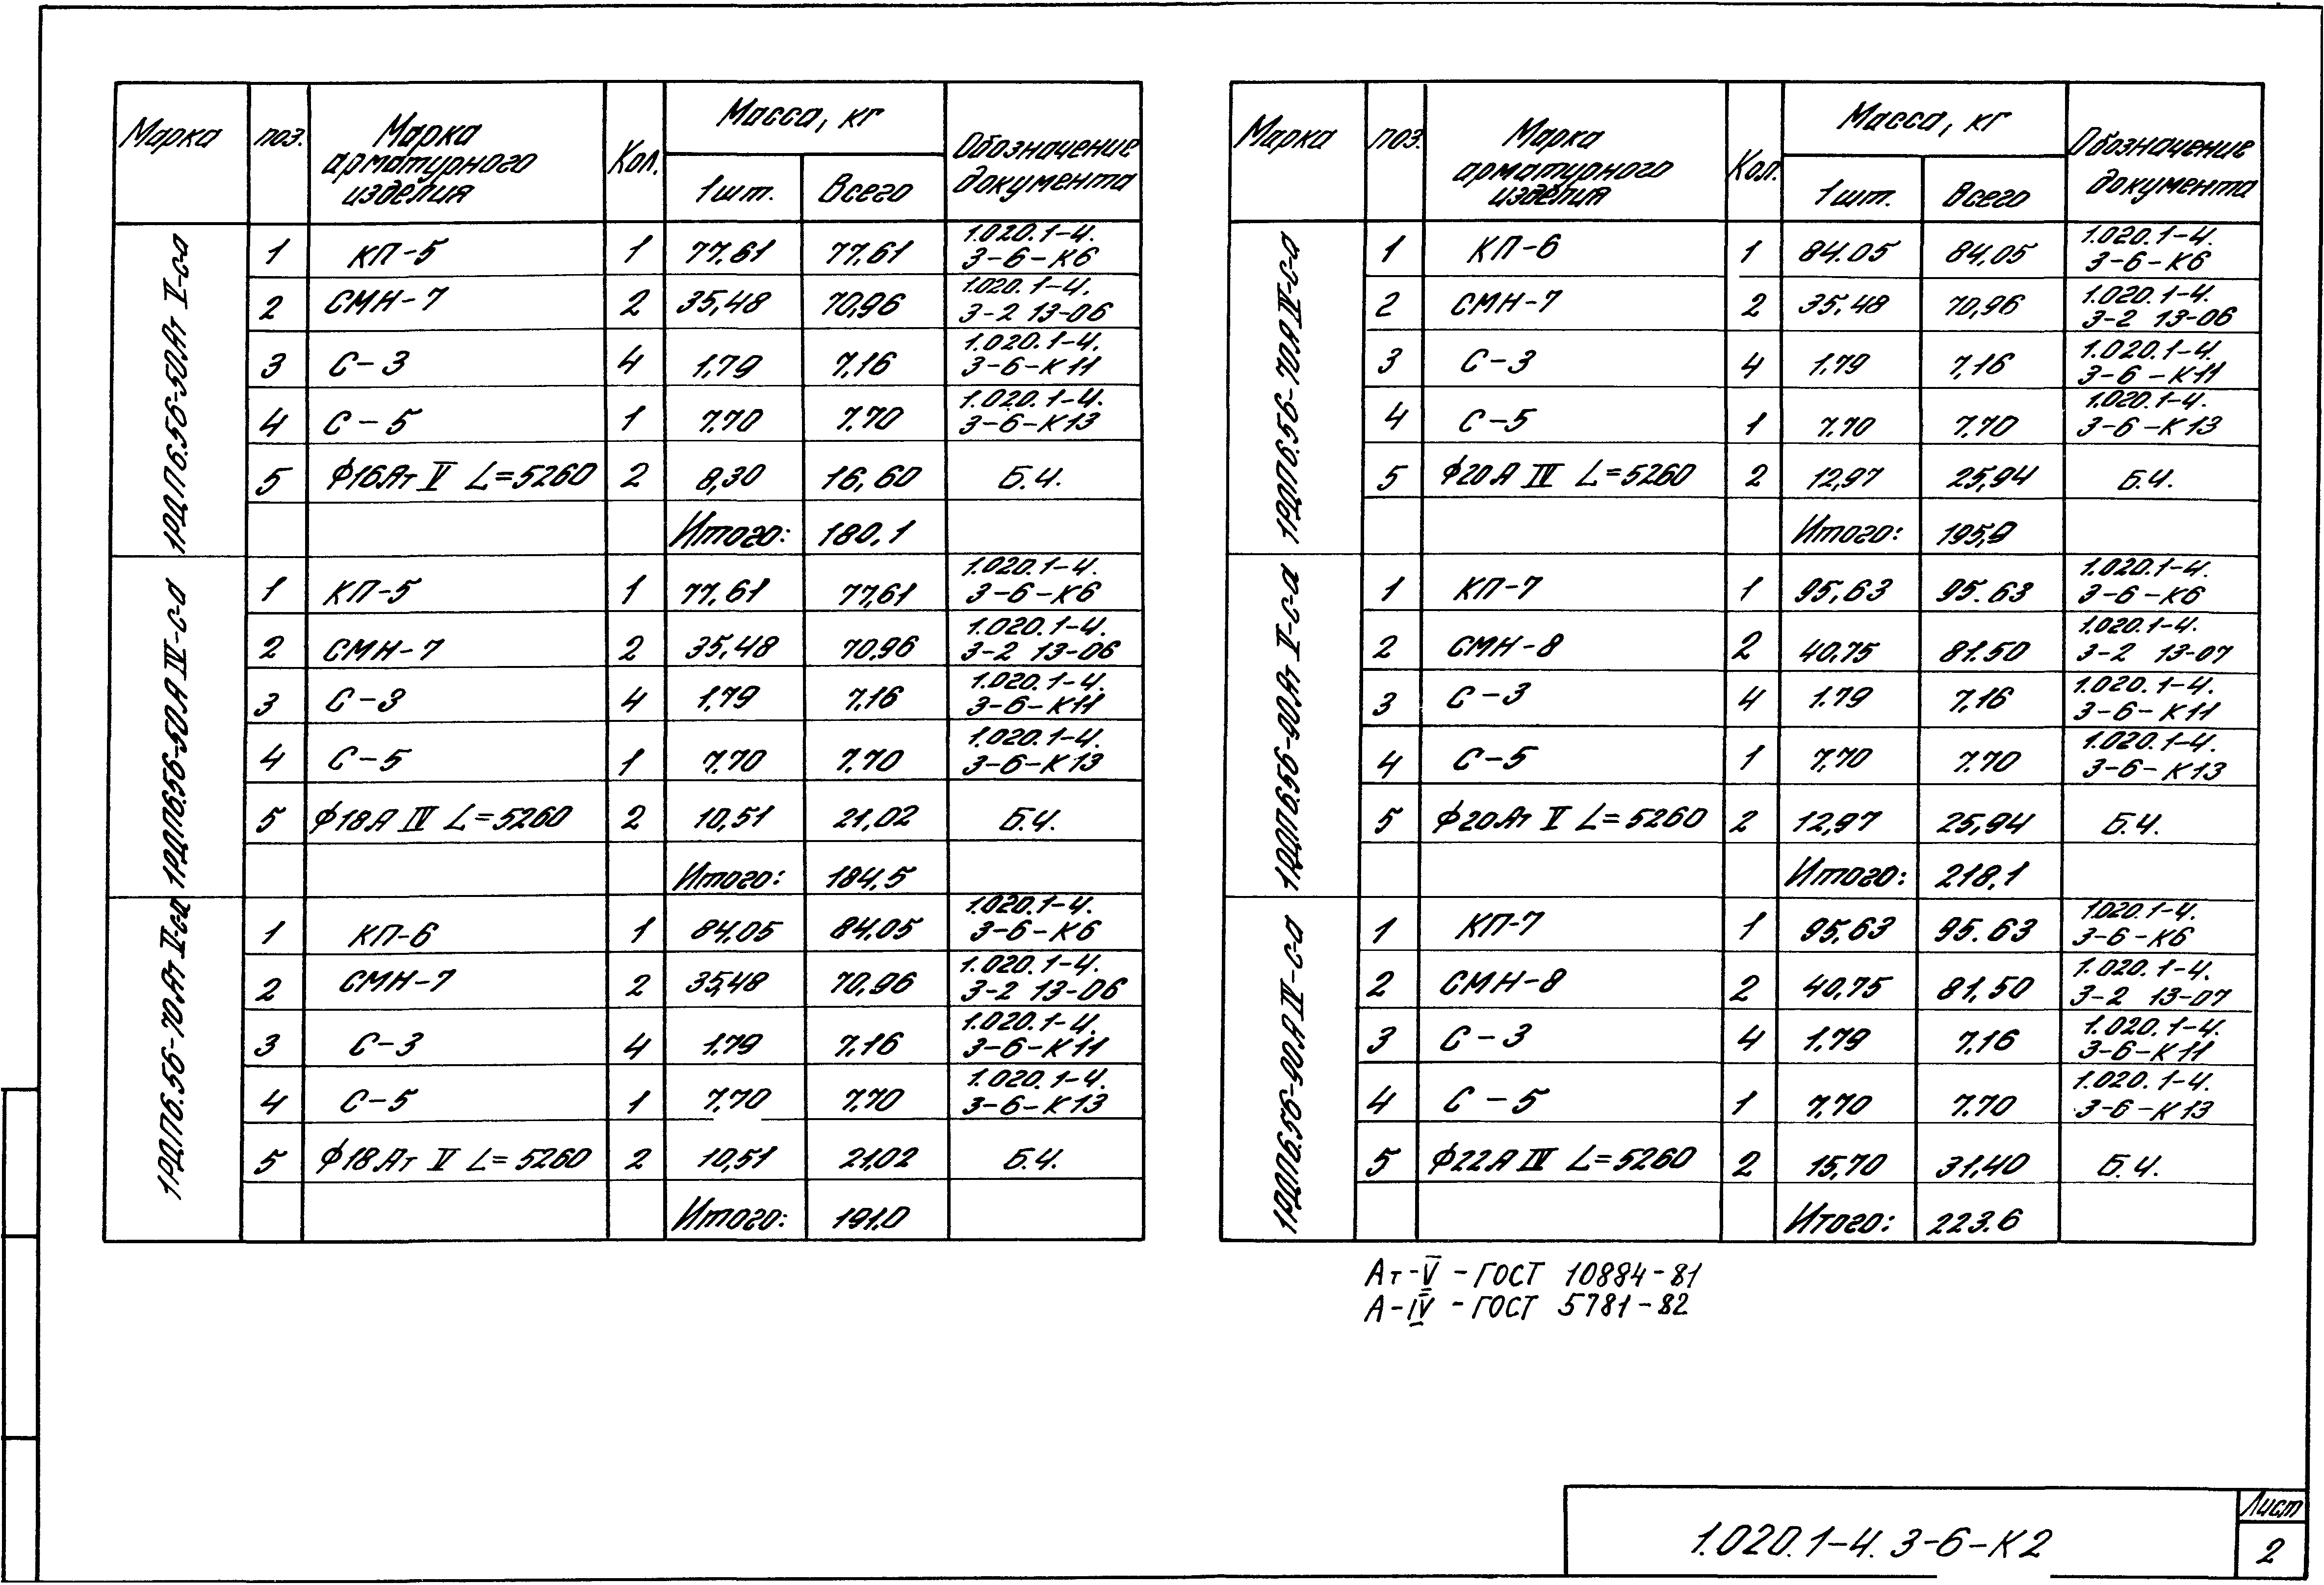 Марка поз. Марка арматурного изделия Кол. Масса, кг Обозначение документа
1шт. Всего
1РДП6.56-50Ат V-са
1 КП-5 1 77,61 77,61 1.020.1-4. 3-6-К6
2 СМН-7 2 35,48 70,96 1.020.1-4. 3-2 13-06
3 С-3 4 1,79 7,16 1.020.1-4. 3-6-К11
4 С-5 1 7.70 7.70 1.020.1-4. 3-6-К13
5 ϕ16Ат V L=5260 2 8,30 16,60 Б.Ч.
Итого: 180,1
1РДП6.56-50А IV-са
1 КП-5 1 77,61 77,61 1.020.1-4. 3-6-К6
2 СМН-7 2 35,48 70,96 1.020.1-4. 3-2 13-06
3 С-3 4 1,79 7,16 1.020.1-4. 3-6-К11
4 С-5 1 7,70 7.70 1.020.1-4. 3-6-К13
5 ϕ18А IV L=5260 2 10,51 21,02 Б.Ч.
Итого: 184,5
1РДП6.56-70Ат V-са
1 КП-6 1 84,05 84,05 1.020.1-4. 3-6-К6
2 СМН-7 2 35,48 70,96 1.020.1-4. 3-2 13-06
3 С-3 4 1,79 7,16 1.020.1-4. 3-6-К11
4 С-5 1 7,70 7,70 1.020.1-4. 3-6-К13
5 ϕ18Ат V L=5260 2 10,51 21,02 Б.Ч.
Итого: 191,0
Марка поз. Марка арматурного изделия Кол. Масса, кг Обозначение документа
1шт. Всего
1РДП6.56-70А IV-са
1 КП-6 1 84.05 84,05 1.020.1-4. 3-6-К6
2 СМН-7 2 35,48 70,96 1.020.1-4. 3-2 13-06
3 С-3 4 1,79 7,16 1.020.1-4. 3-6-К11
4 С-5 1 7.70 7,70 1.020.1-4. 3-6-К13
5 ϕ20А IV L=5260 2 12,97 25,94 Б.Ч.
Итого: 195,9
1РДП6.56-90Ат V-са
1 КП-7 1 95,63 95.63 1.020.1-4. 3-6-К6
2 СМН-8 2 40,75 81.50 1.020.1-4. 3-2 13-07
3 С-3 4 1.79 7,16 1.020.1-4. 3-6-К11
4 С-5 1 7,70 7.70 1.020.1-4. 3-6-К13
5 ϕ20Ат V L=5260 2 12,97 25,94 Б.Ч.
Итого: 218,1
1РДП6.56-90А IV-са
1 КП-7 1 95,63 95.63 1.020.1-4. 3-6-К6
2 СМН-8 2 40,75 81,50 1.020.1-4. 3-2 13-07
3 С-3 4 1,79 7,16 1.020.1-4. 3-6-К11
4 С-5 1 7.70 7.70 1.020.1-4. 3-6-К13
5 ϕ22А IV L=5260 2 15,70 31,40 Б.Ч.
Итого: 223.6
Ат-V - ГОСТ 10884-81
А-IV - ГОСТ 5781-82
1.020.1-4. 3-6-К2
Лист
2